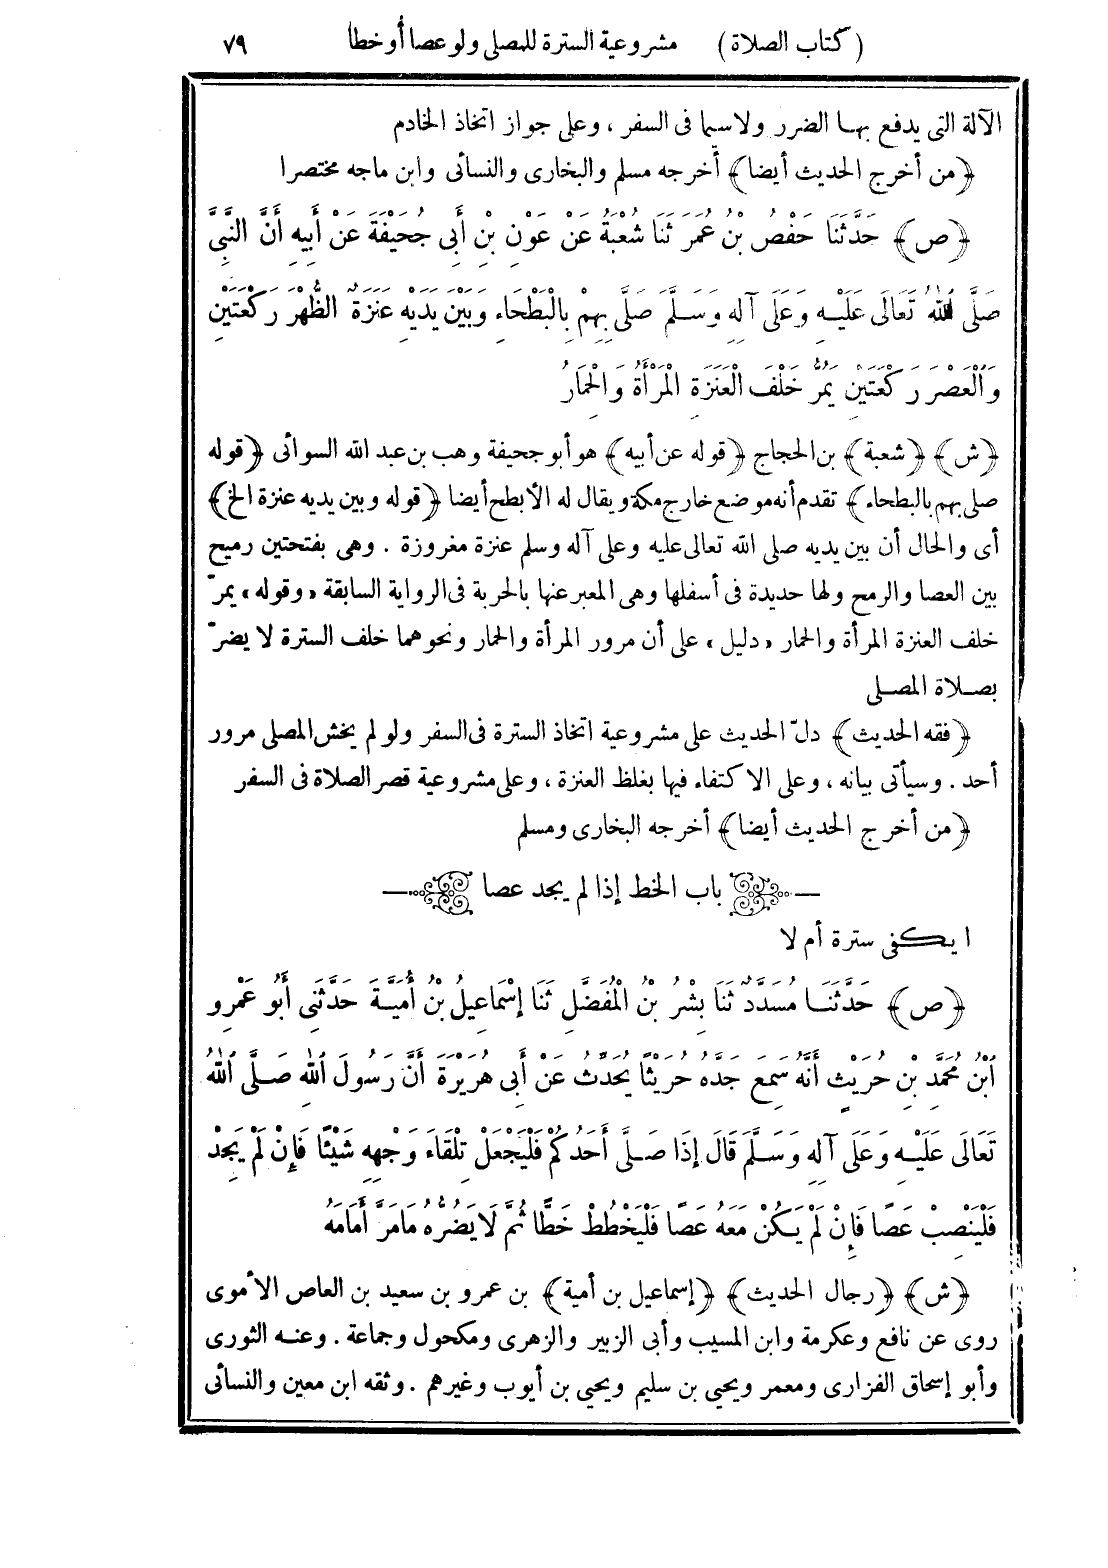 (كتاب الصلاة) مشروعية السترة للمصلى ولو عصا أو خطا ٧٩
الآلة التى يدفع بها الضرر ولاسيما فى السفر ، وعلى جواز اتخاذ الخادم
﴿من أخرج الحديث أيضا﴾ أخرجه مسلم والبخارى والنسائى وابن ماجه مختصرا
﴿ص﴾ حَدَّثَنَا حَفْصُ بْنُ عُمَرَ ثَنَا شُعْبَةُ عَنْ عَوْنِ بْنِ أَبِى جُحَيْفَةَ عَنْ أَبِيهِ أَنَّ النَّبِىَّ
صَلَّى اللهُ تَعَالَى عَلَيْهِ وَعَلَى آلِهِ وَسَلَّمَ صَلَّى بِهِمْ بِالْبَطْحَاءِ وَبَيْنَ يَدَيْهِ عَنَزَةٌ الظُّهْرَ رَكْعَتَيْنِ
وَالْعَصْرَ رَكْعَتَيْنِ يَمُرُّ خَلْفَ الْعَنَزَةِ الْمَرْأَةُ وَالْحِمَارُ
﴿ش﴾ ﴿شعبة﴾ بن الحجاج ﴿قوله عن أبيه﴾ هو أبو جحيفة وهب بن عبد الله السوائى ﴿قوله
صلى بهم بالبطحاء﴾ تقدم أنه موضع خارج مكة ويقال له الأبطح أيضا ﴿قوله وبين يديه عنزة الخ﴾
أى والحال أن بين يديه صلى الله تعالى عليه وعلى آله وسلم عنزة مغروزة . وهى بفتحتين رميح
بين العصا والرمح ولها حديدة فى أسفلها وهى المعبر عنها بالحربة فى الرواية السابقة «وقوله» يمرّ
خلف العنزة المرأة والحمار «دليل» على أن مرور المرأة والحمار ونحوهما خلف السترة لا يضرّ
بصلاة المصلى
﴿فقه الحديث﴾ دلّ الحديث على مشروعية اتخاذ السترة فى السفر ولو لم يخش المصلى مرور
أحد . وسيأتى بيانه ، وعلى الاكتفاء فيها بغلظ العنزة ، وعلى مشروعية قصر الصلاة فى السفر
﴿من أخرج الحديث أيضا﴾ أخرجه البخارى ومسلم
باب الخط إذا لم يجد عصا
ا يكفى سترة أم لا
﴿ص﴾ حَدَّثَنَا مُسَدَّدٌ ثَنَا بِشْرُ بْنُ الْمُفَضَّلِ ثَنَا إِسْمَاعِيلُ بْنُ أُمَيَّةَ حَدَّثَنِى أَبُو عَمْرِو
ابْنُ مُحَمَّدِ بْنِ حُرَيْثٍ أَنَّهُ سَمِعَ جَدَّهُ حُرَيْثًا يُحَدِّثُ عَنْ أَبِى هُرَيْرَةَ أَنَّ رَسُولَ اللهِ صَلَّى اللهُ
تَعَالَى عَلَيْهِ وَعَلَى آلِهِ وَسَلَّمَ قَالَ إِذَا صَلَّى أَحَدُكُمْ فَلْيَجْعَلْ تِلْقَاءَ وَجْهِهِ شَيْئًا فَإِنْ لَمْ يَجِدْ
فَلْيَنْصِبْ عَصًا فَإِنْ لَمْ يَكُنْ مَعَهُ عَصًا فَلْيَخْطُطْ خَطًّا ثُمَّ لَا يَضُرُّهُ مَا مَرَّ أَمَامَهُ
﴿ش﴾ ﴿رجال الحديث﴾ ﴿إسماعيل بن أمية﴾ بن عمرو بن سعيد بن العاص الأموى
روى عن نافع وعكرمة وابن المسيب وأبى الزبير والزهرى ومكحول وجماعة . وعنه الثورى
وأبو إسحاق الفزارى ومعمر ويحيى بن سليم ويحيى بن أيوب وغيرهم . وثقه ابن معين والنسائى